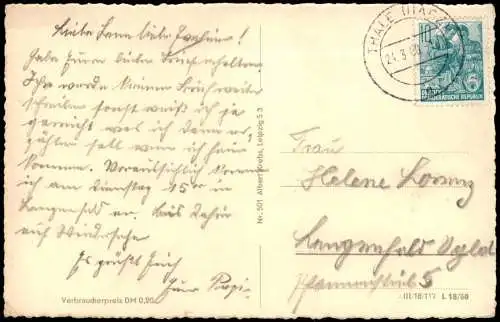 Liebe Leni liebe Eveline!
Habe Euren lieben Brief erhalten.
Ich werde keinen Brief weiter
schreiben sonst weiß ich ja
garnicht was ich dann er-
zählen soll wenn ich heim
komme. Voraussichtlich komme
ich am Dienstag 15 in
Lengenfeld an. Bis dahin
auf Wiedersehn
Es grüßt Euch
Euer Papi
Verbraucherpreis DM 0,20
Nr. 501 Albert Krebs, Leipzig S 3
THALE (HARZ)
24.3.
10
DEUTSCHE DEMOKRATISCHE REPUBLIK
Frau
Helene Lorenz
Lengenfeld Vogtld
5
III/18/117 L 18/58